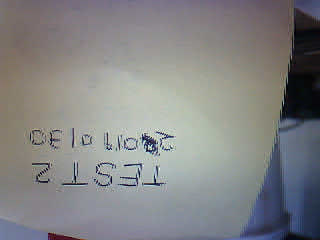 TEST 2
2019 01 30